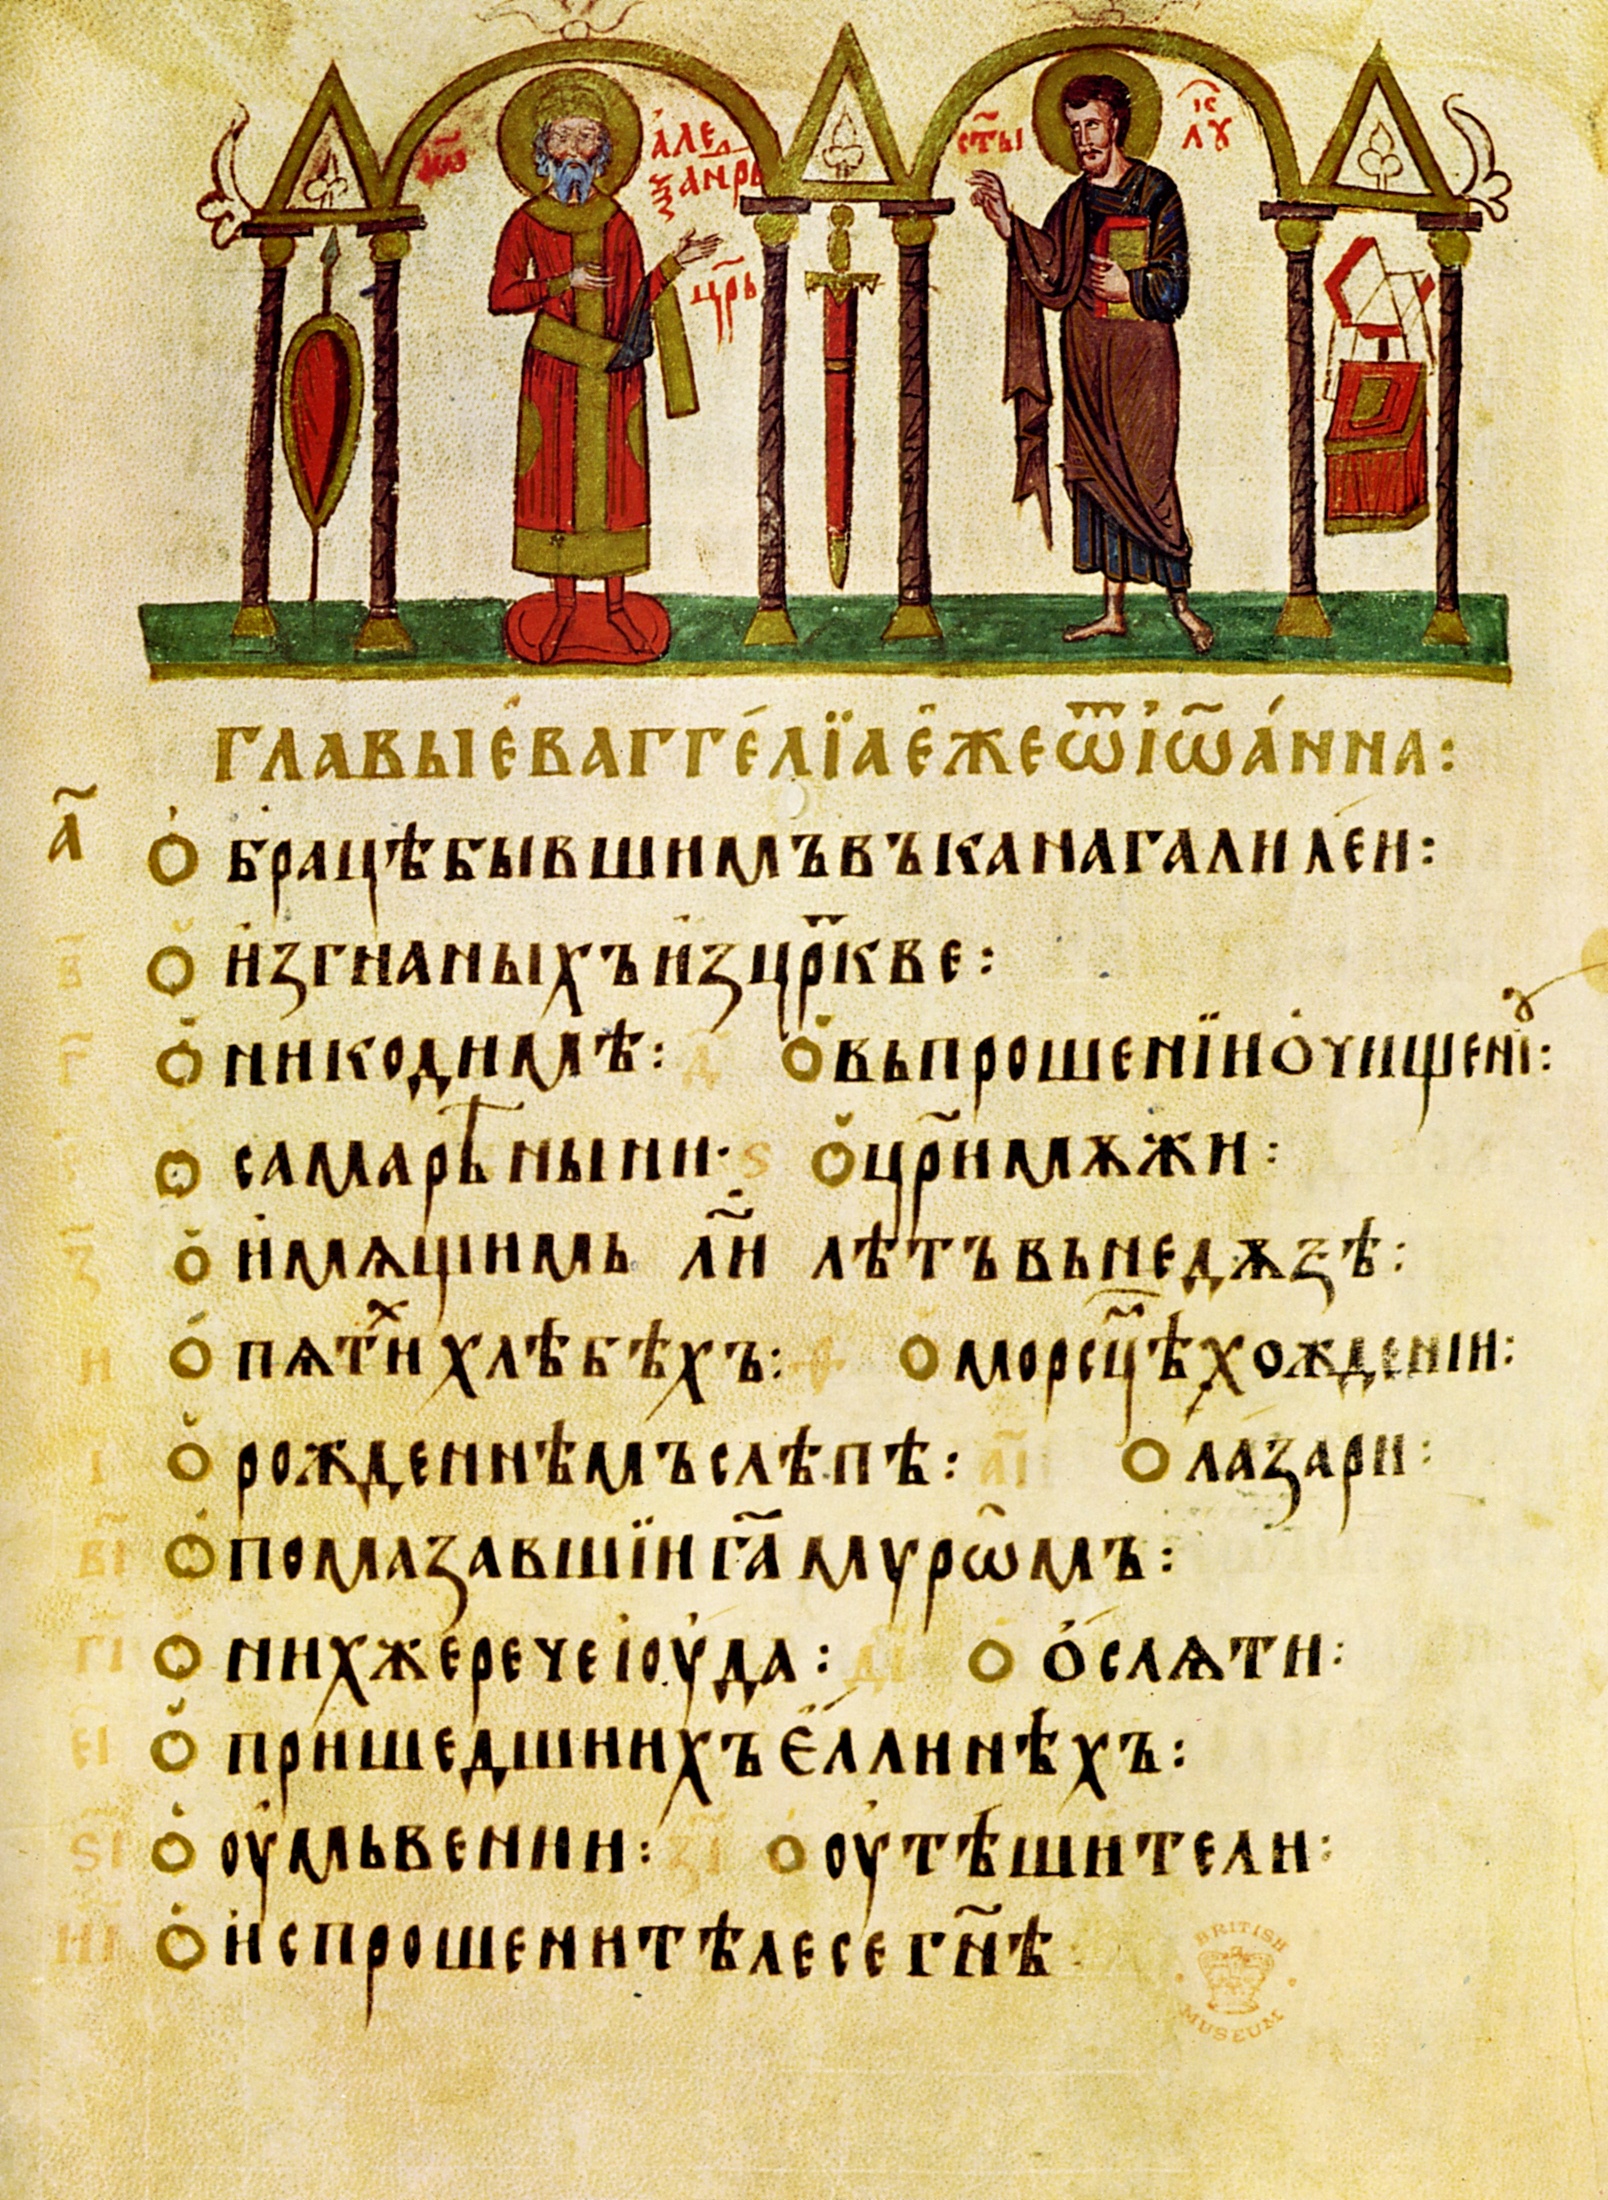 і҃ѡ
а҆ле
ѯандрь
цр҃ь
ст҃ы
і҃с
лꙋ
главы е҆ваггелїа е҆же ѿ і҆ѡ҃а́нна :
а҃ о҆ брацѣ бывшимъ въ кана галилеи :
в҃ о҆ и҆згнаныхъ из цр҃кве :
г҃ о҆ никодимѣ : д҃ о҆ въпрошенїи очищенї :
е҃ о самарѣныни · ѕ о цр҃и мѫжи :
з҃ о имѧщимь л҃и лѣтъ вь недѫзѣ :
и о пѧтⷯи хлѣбѣхъ : ѳ о морсцѣ хождении :
і о рожденнѣмъ слѣпѣ : а҃і о лазари :
в҃і о помазавшїи г҃а мурѡмъ :
г҃і о нихже рече іоуда : д҃і о о҆слѧти :
е҃і о пришедшиихъ еллинѣхъ :
ѕ҃і о оумьвении : з҃і о оутѣшители :
и҃і о испрошени тѣлесе гн҃ѣ
BRITISH
MUSEUM